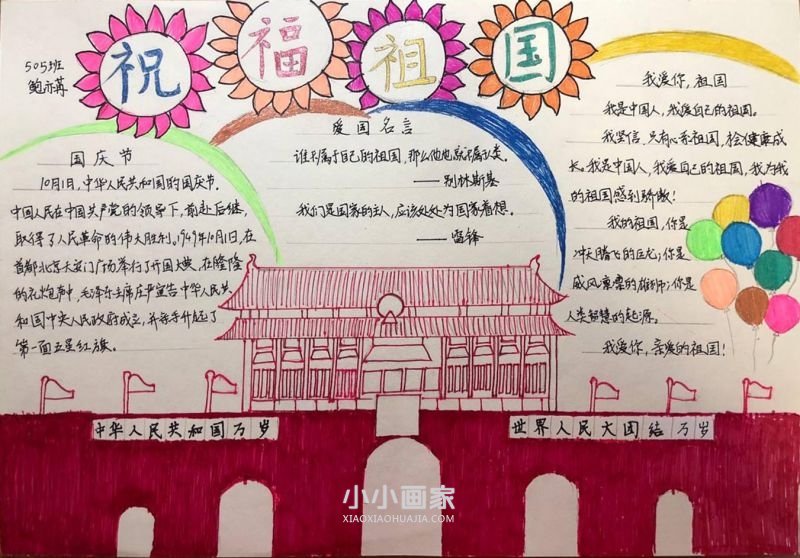 祝福祖国
505班
鲍亦苒
国庆节
10月1日，中华人民共和国的国庆节。
中国人民在中国共产党的领导下，前赴后继，
取得了人民革命的伟大胜利。1949年10月1日，在
首都北京天安门广场举行了开国大典，在隆隆
的礼炮声中，毛泽东主席庄严宣告中华人民共
和国中央人民政府成立，并亲手升起了
第一面五星红旗。
爱国名言
谁不属于自己的祖国，那么他也就不属于人类。
——别林斯基
我们是国家的主人，应该处处为国家着想。
——雷锋
我爱你，祖国
我是中国人，我爱自己的祖国。
我坚信，只有心系祖国，才会健康成
长。我是中国人，我爱自己的祖国，我为我
的祖国感到骄傲！
我的祖国，你是
冲天腾飞的巨龙；你是
威风凛凛的雄狮；你是
人类智慧的起源。
我爱你，亲爱的祖国！
中华人民共和国万岁
世界人民大团结万岁
小小画家
XIAOXIAOHUAJIA.COM